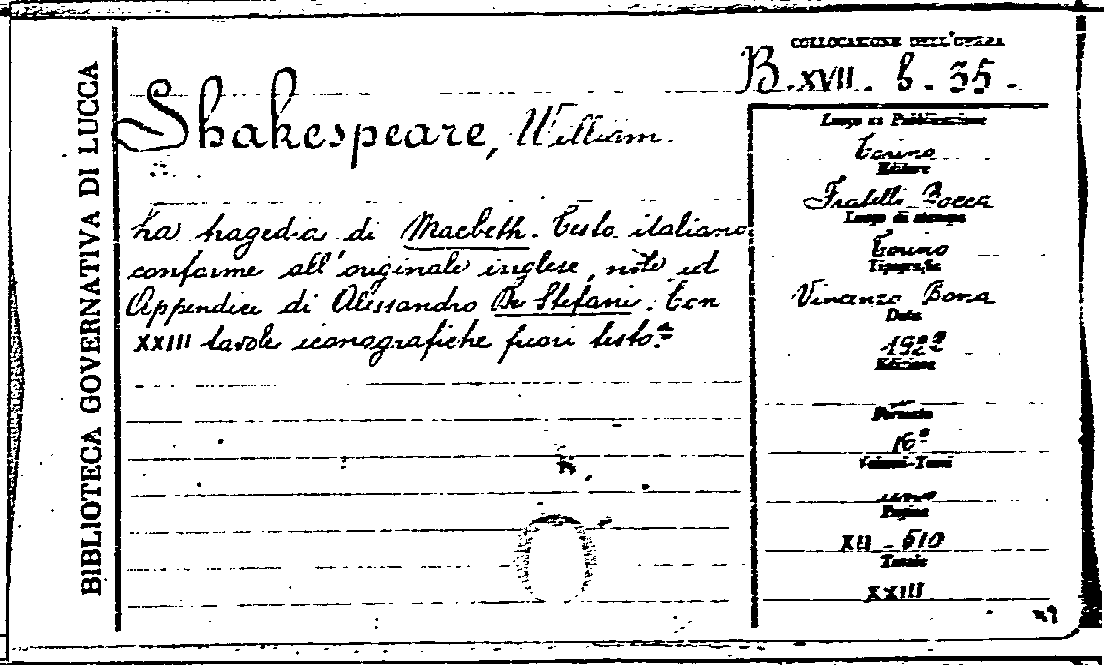 BIBLIOTECA GOVERNATIVA DI LUCCA
COLLOCAZIONE DELL'OPERA
B.XVII. 6. 35.
Shakespeare, William.
La tragedia di Macbeth. Testo italiano
conforme all'originale inglese, note ed
Appendice di Alessandro De Stefani. Con
XXIII tavole iconografiche fuori testo.
Luogo di Pubblicazione
Torino
Editore
Fratelli Bocca
Luogo di stampa
Torino
Tipografia
Vincenzo Bona
Data
1922
Edizione
Formato
16°
Volumi-Tomi
Pagine
XII - 510
Tavole
XXIII